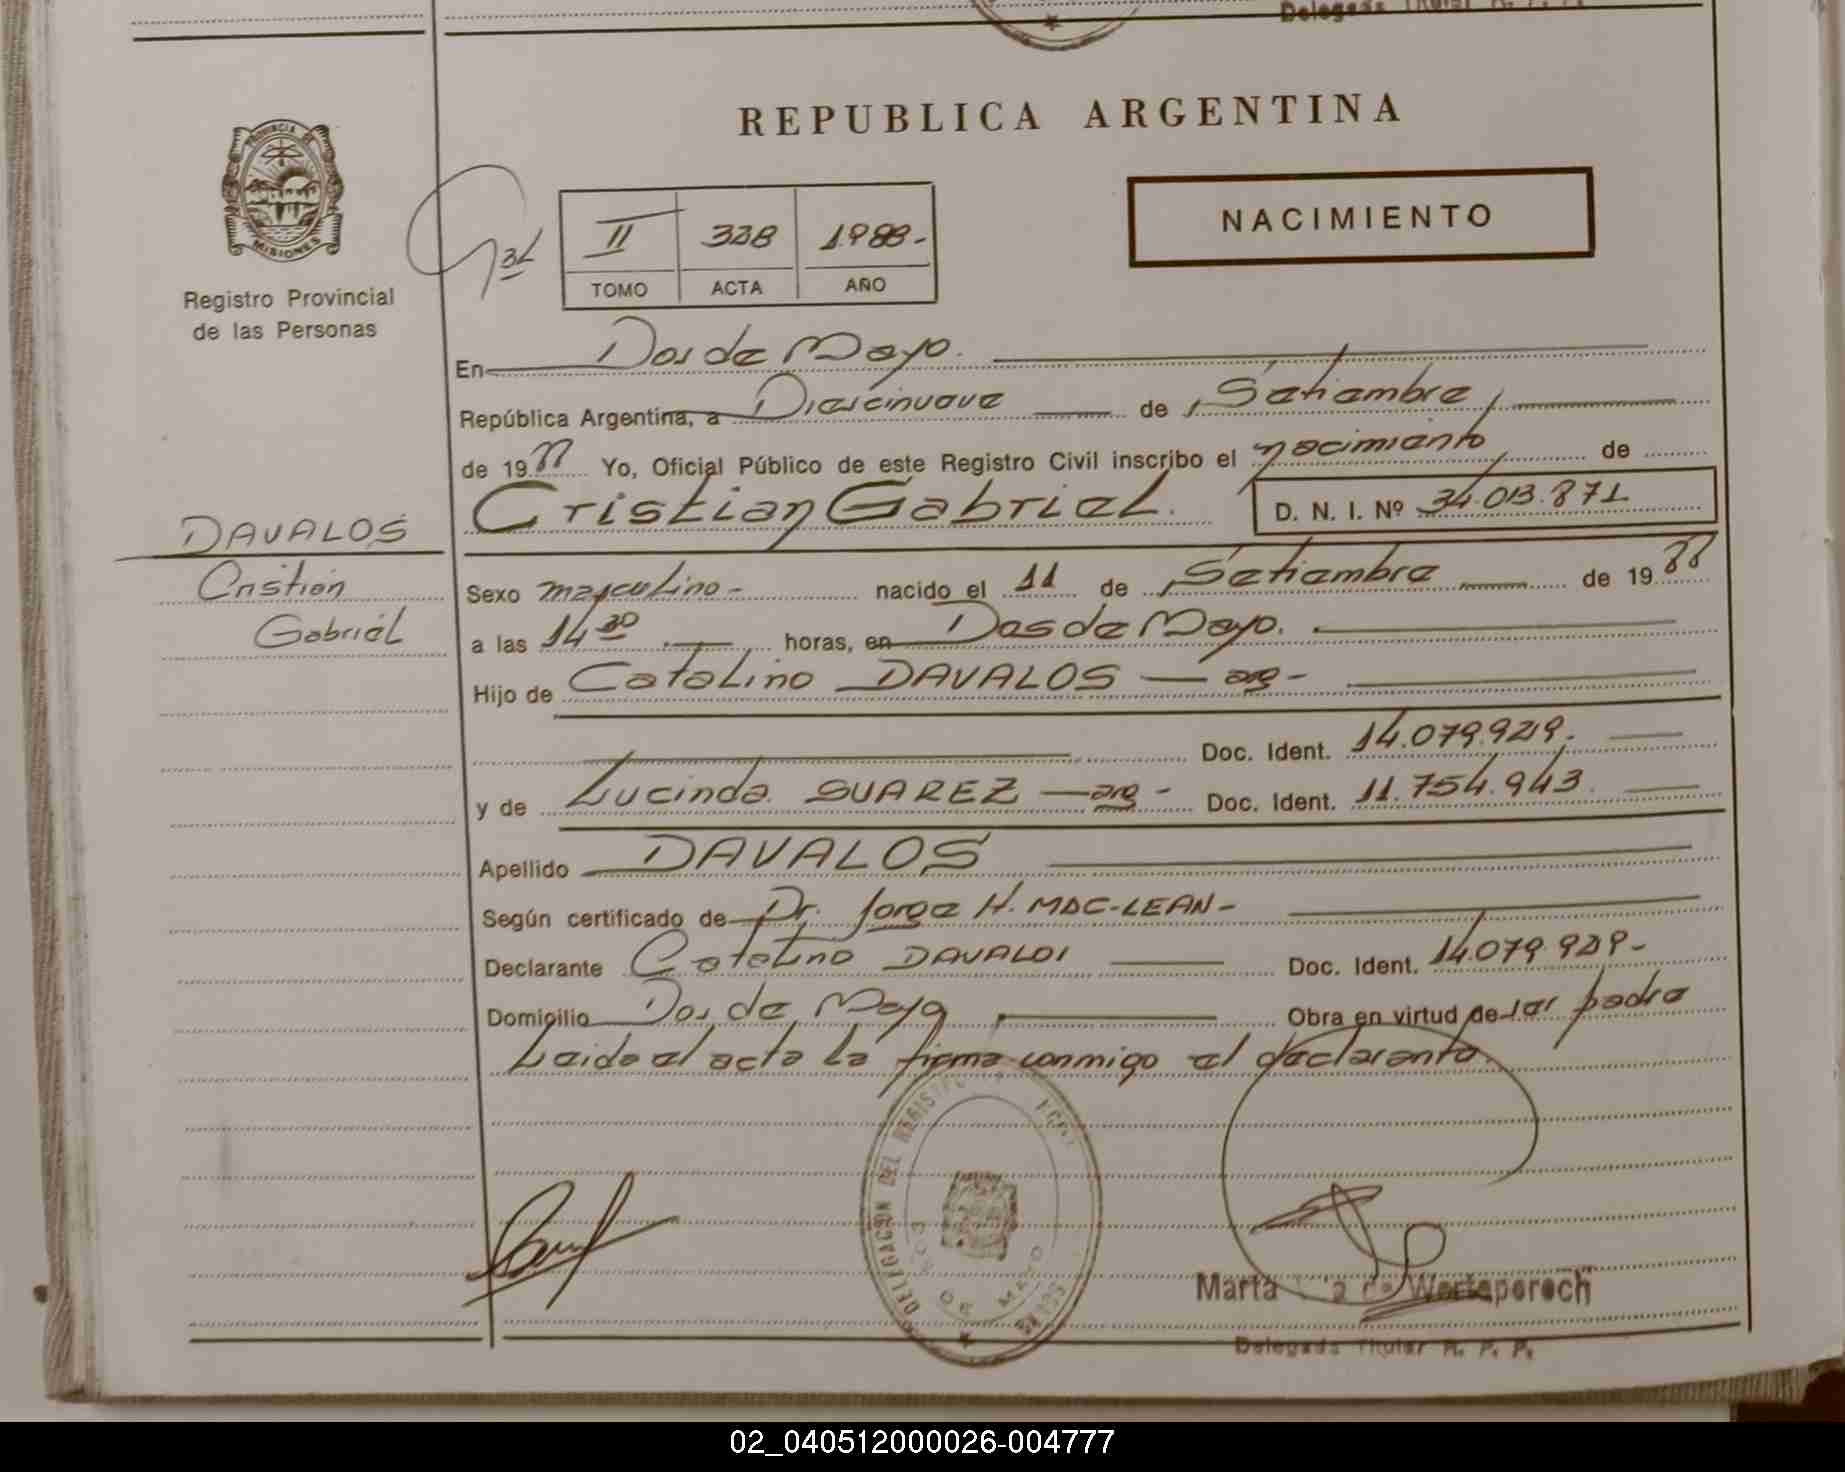 Delegada Titular R. P. P.
REPUBLICA ARGENTINA
PROVINCIA DE
MISIONES
Registro Provincial
de las Personas
II 338 1988.-
TOMO ACTA AÑO
NACIMIENTO
En Dos de Mayo.
República Argentina, a Diecinueve de Setiembre
de 1988 Yo, Oficial Público de este Registro Civil inscribo el nacimiento de
Cristian Gabriel. D. N. I. Nº 34.013.871
DAVALOS
Cristian
Gabriel
Sexo masculino - nacido el 11 de Setiembre de 1988
a las 14 30 horas, en Dos de Mayo.
Hijo de Catalino DAVALOS — arg -
Doc. Ident. 14.079.929.
y de Lucinda SUAREZ — arg - Doc. Ident. 11.754.943.
Apellido DAVALOS
Según certificado de Dr. Jorge H. MAC-LEAN -
Declarante Catalino DAVALOS Doc. Ident. 14.079.929 -
Domicilio Dos de Mayo Obra en virtud de ser padre
Leida el acta la firma conmigo el declarante.
DELEGACION DEL REGISTRO
DOS DE MAYO
Marta de
Delegada Titular R. P. P.
02_040512000026-004777